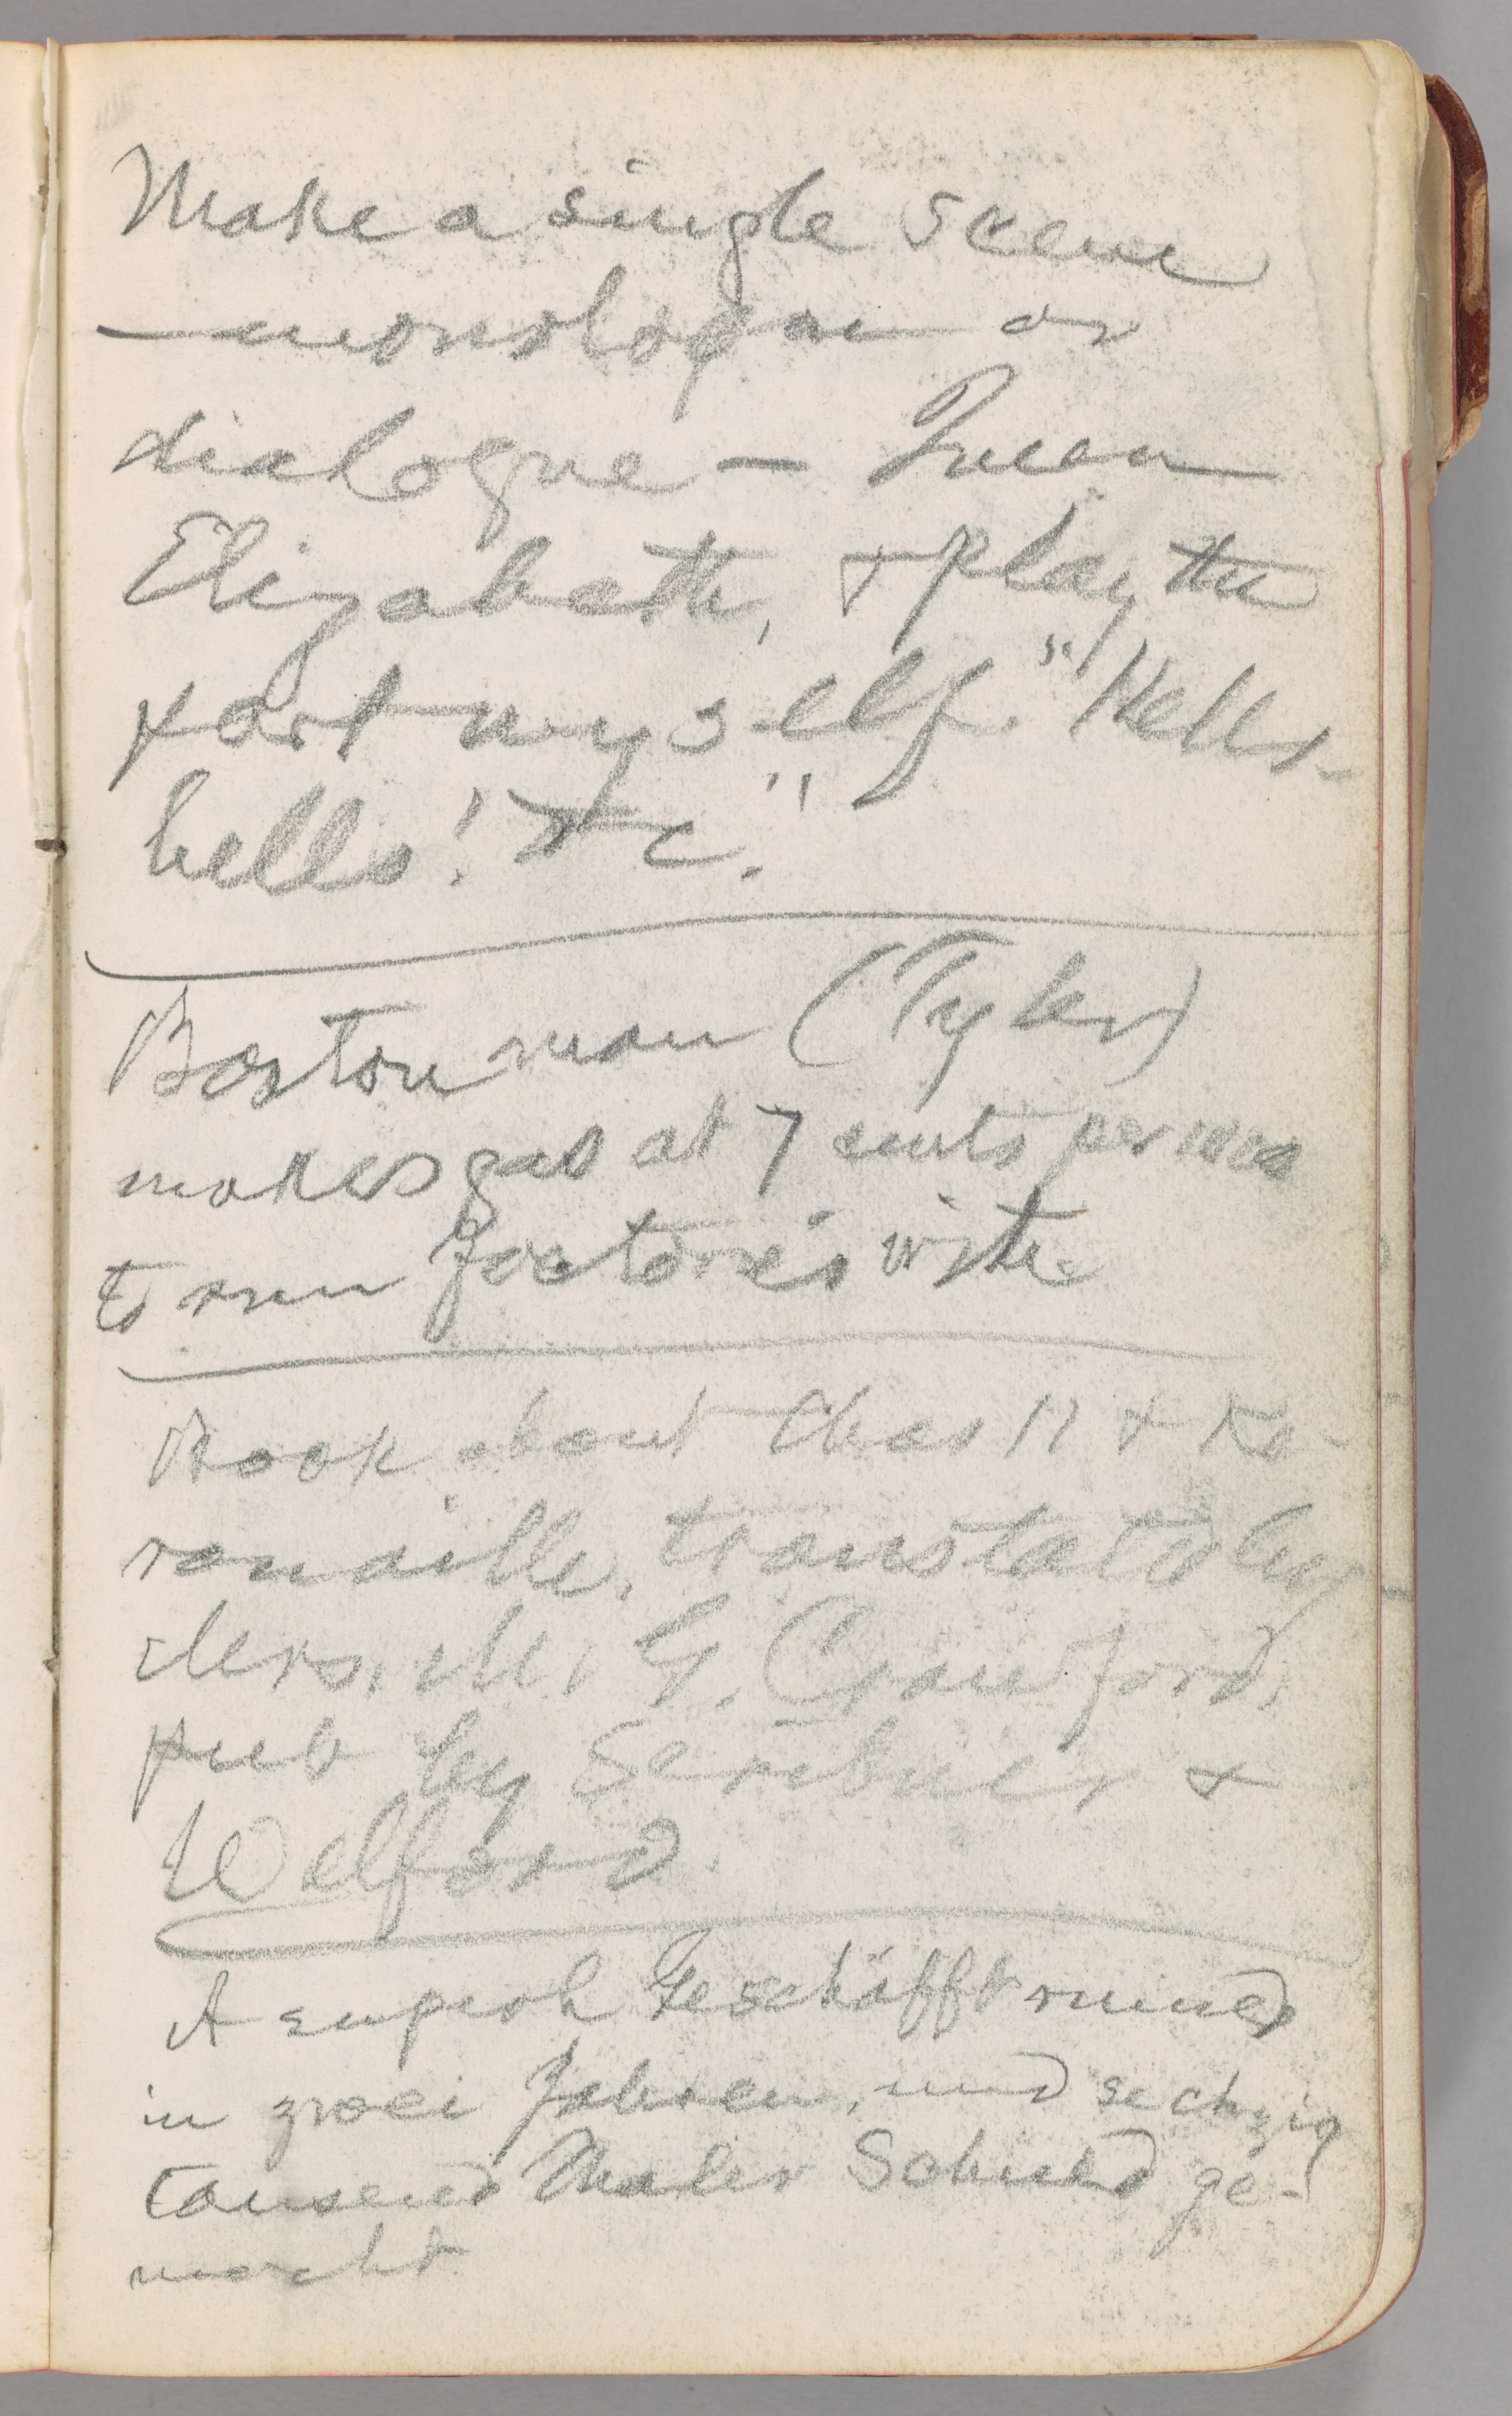 Make a single scene
—monologue or
dialogue — Queen
Elizabeth, & play the
part myself. "Hello-
hello! &c."
Boston man (Tyler)
makes gas at 7 cents per 1000
to run factories with
Book about Chas II & Ke-
rouaille, translated by
Mrs. M. G. Crawford,
pub by Scribner &
Welford.
A superb Geschäfft ruined
in zwei Jahren, und sechzig
tausend Thaler Schuld ge-
macht